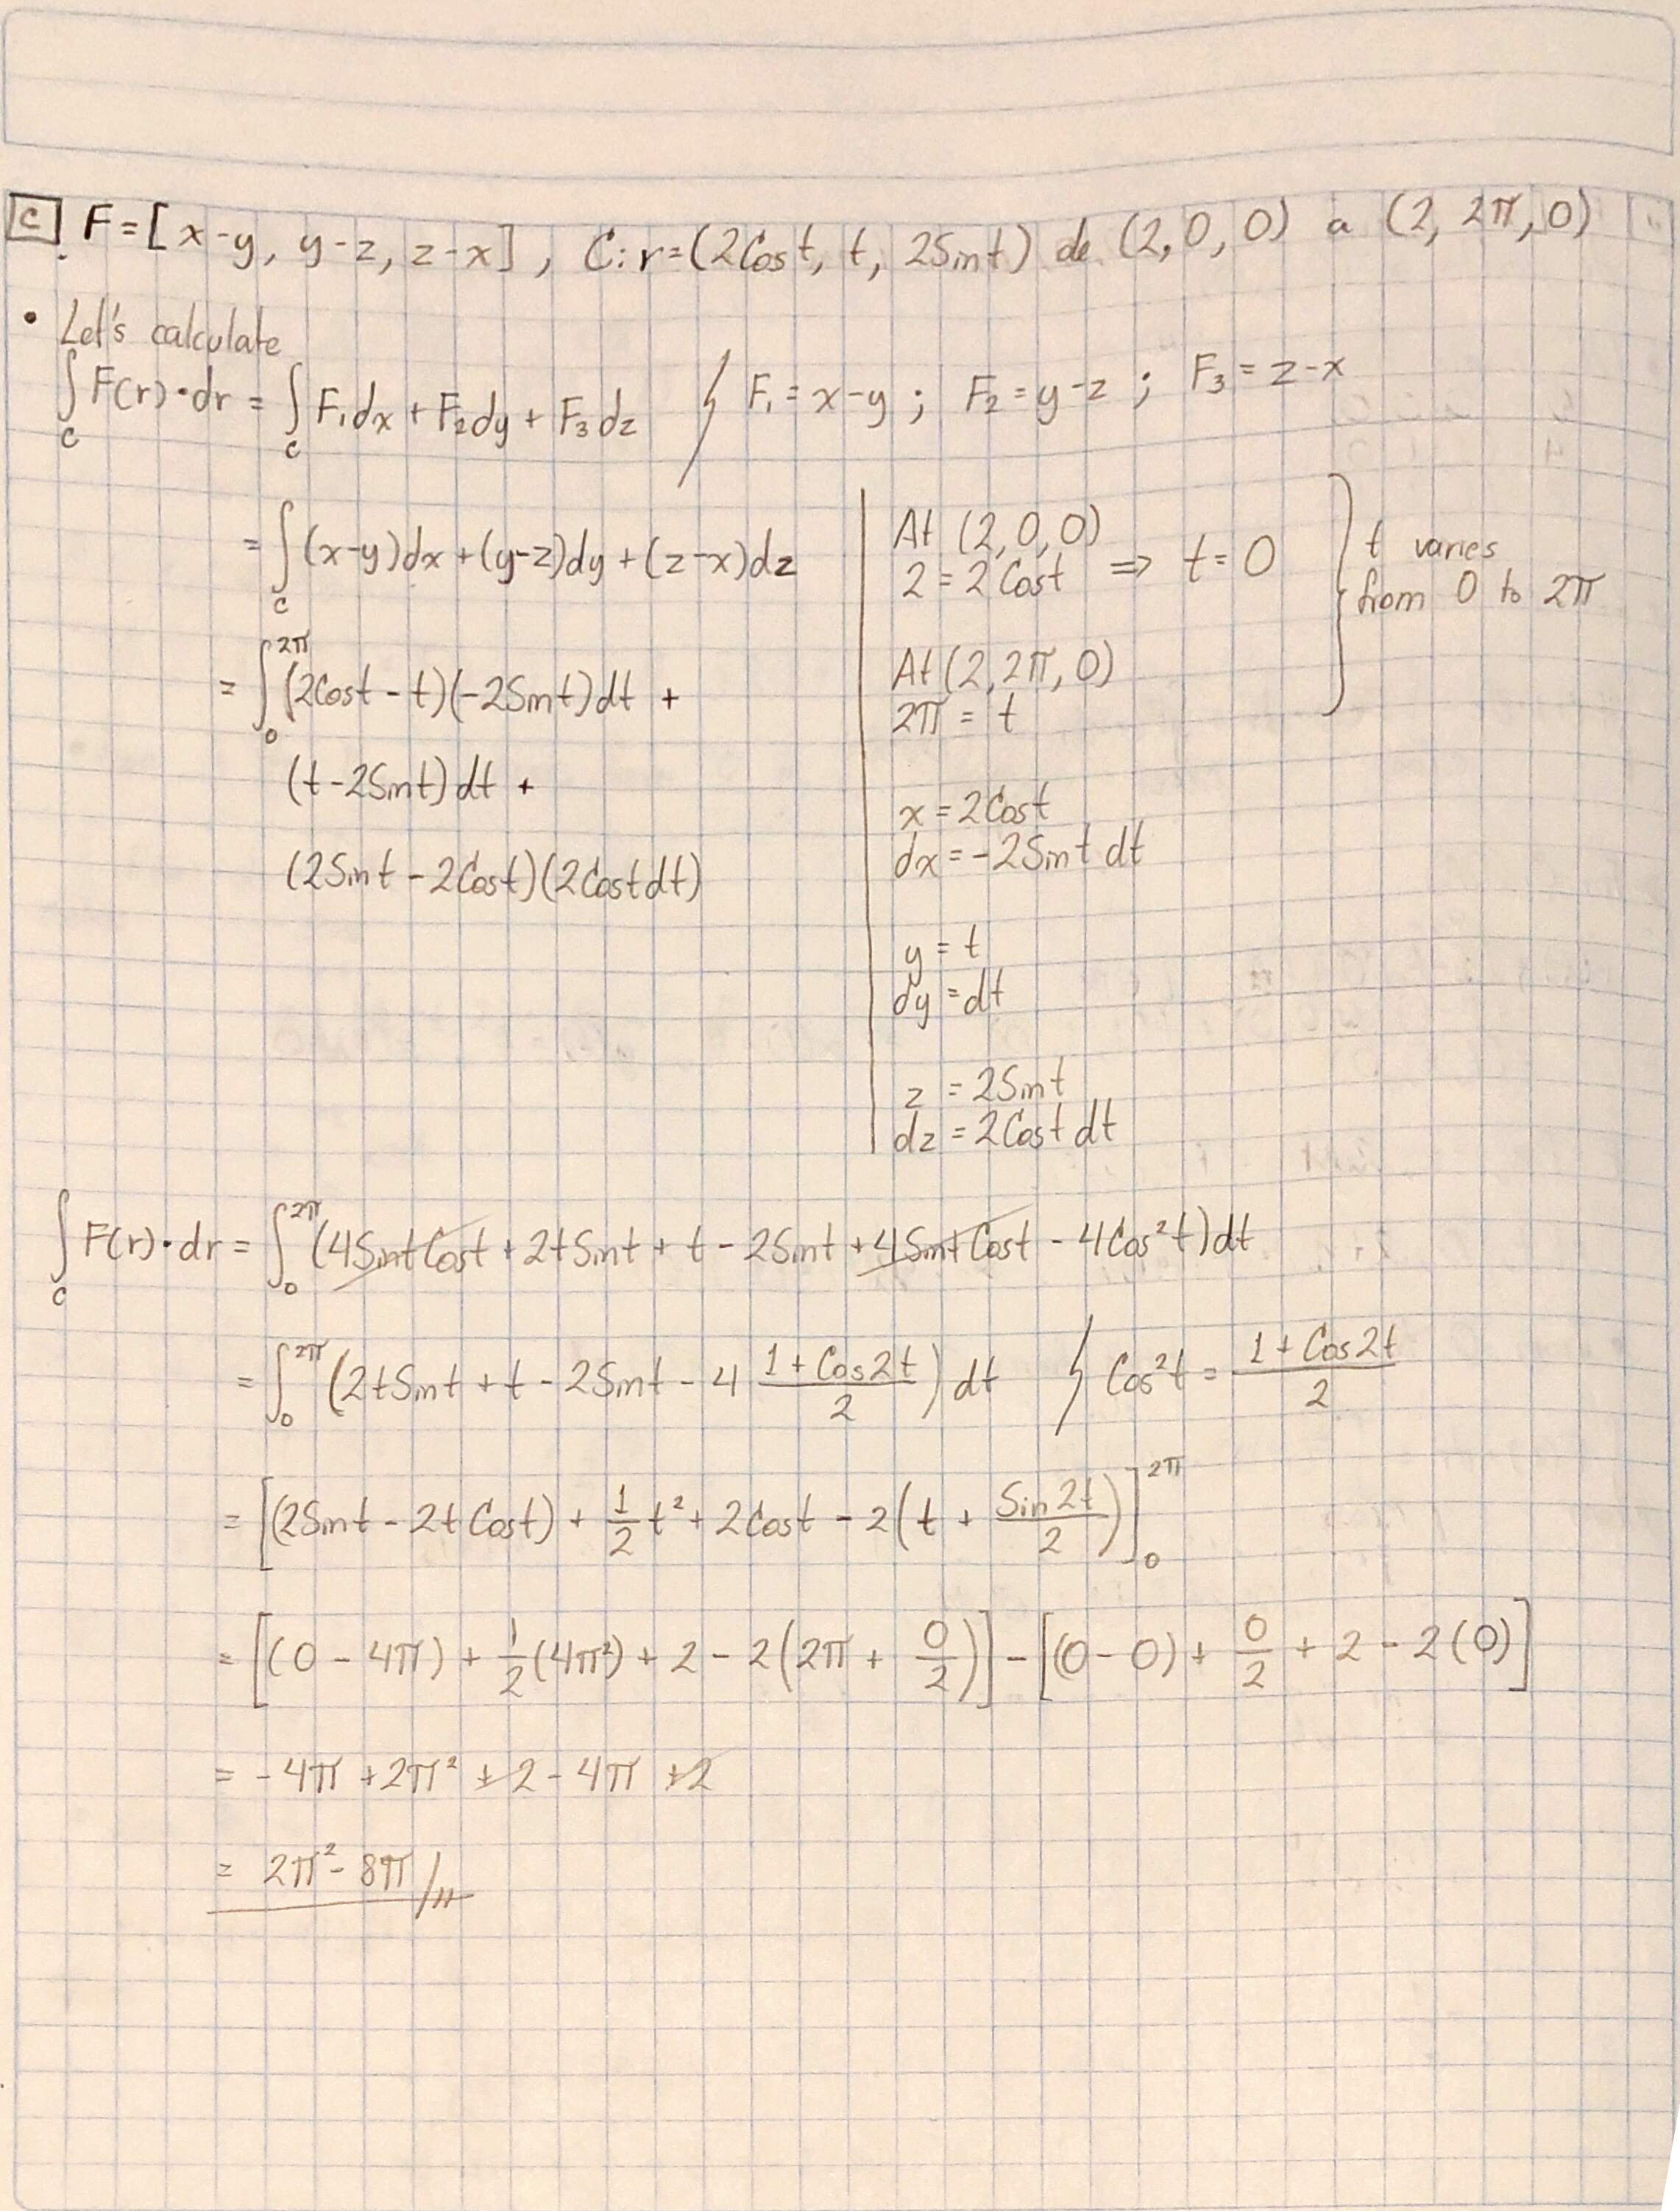 C. F = [x-y, y-z, z-x], C: r = (2Cos t, t, 2Sin t) de (2, 0, 0) a (2, 2π, 0)
• Let's calculate
∫_C F(r)·dr = ∫_C F₁dx + F₂dy + F₃dz / F₁ = x-y ; F₂ = y-z ; F₃ = z-x
= ∫_C (x-y)dx + (y-z)dy + (z-x)dz
= ∫_0^{2π} (2Cost - t)(-2Sint)dt +
(t - 2Sint)dt +
(2Sint - 2Cost)(2Cost dt)
At (2, 0, 0)
2 = 2Cost ⇒ t = 0
At (2, 2π, 0)
2π = t
t varies
from 0 to 2π
x = 2Cost
dx = -2Sint dt
y = t
dy = dt
z = 2Sint
dz = 2Cost dt
∫_C F(r)·dr = ∫_0^{2π} (4SintCost + 2tSint + t - 2Sint + 4SintCost - 4Cos²t)dt
= ∫_0^{2π} (2tSint + t - 2Sint - 4 (1+Cos2t)/2) dt / Cos²t = (1+Cos2t)/2
= [(2Sint - 2tCost) + 1/2 t² + 2Cost - 2(t + Sin2t/2)]_0^{2π}
= [(0 - 4π) + 1/2(4π²) + 2 - 2(2π + 0/2)] - [(0-0) + 0/2 + 2 - 2(0)]
= -4π + 2π² + 2 - 4π + 2
= 2π² - 8π //